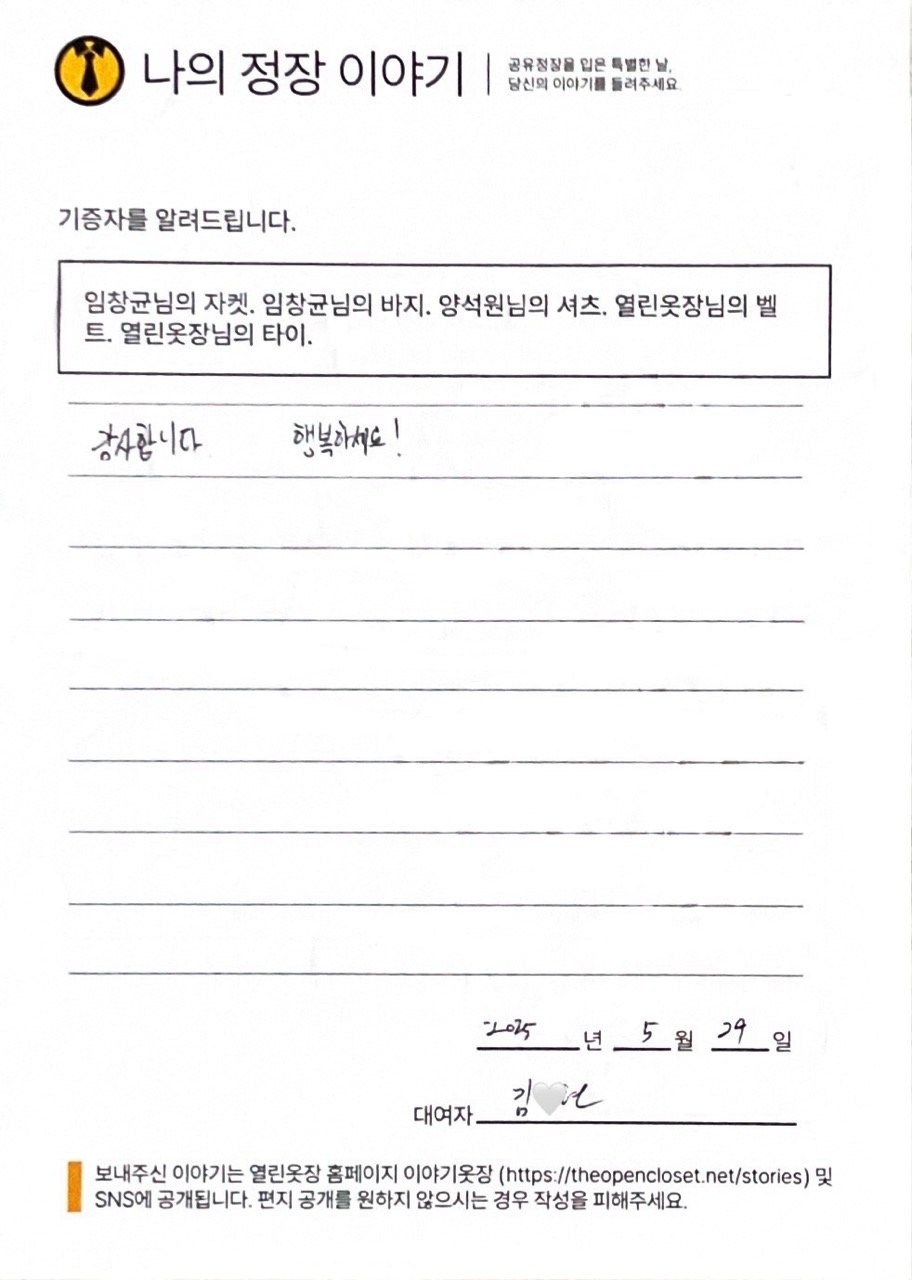 나의 정장 이야기
공유정장을 입은 특별한 날,
당신의 이야기를 들려주세요.
기증자를 알려드립니다.
임창균님의 자켓. 임창균님의 바지. 양석원님의 셔츠. 열린옷장님의 벨
트. 열린옷장님의 타이.
감사합니다 행복하세요!
2025 년 5 월 29 일
대여자 김
보내주신 이야기는 열린옷장 홈페이지 이야기옷장 (https://theopencloset.net/stories) 및
SNS에 공개됩니다. 편지 공개를 원하지 않으시는 경우 작성을 피해주세요.